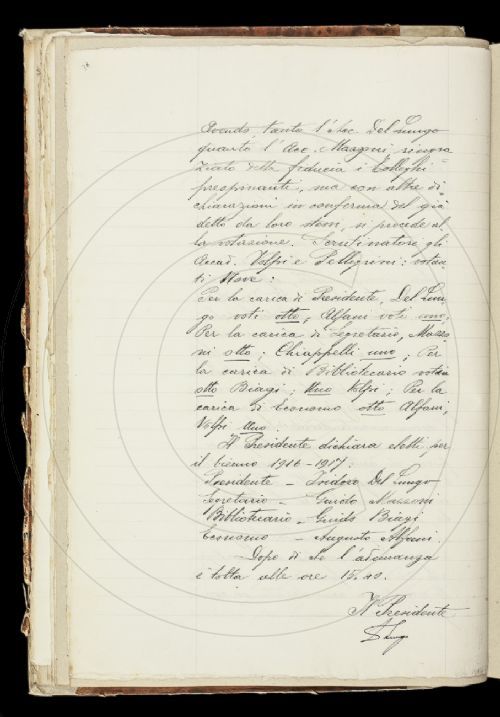 Avendo, tanto l'Acc. Del Lungo
quanto l'Acc. Mazzoni ringra
ziato della fiducia i Colleghi
preopinanti, ma con altre di-
chiarazioni in conferma del già
detto da loro stessi, si procede al
la votazione. Scrutinatori gli
Accad. Volpi e Pellegrini: votan
ti Nove:
Per la carica di Presidente, Del Lun
go voti otto; Alfani voti uno;
Per la carica di Segretario, Mazzo
ni otto; Chiappelli uno; Per
la carica di Bibliotecario
otto Biagi; Uno Volpi; Per la
carica di Economo otto Alfani
Volpi Uno:
Il Presidente dichiara eletti per
il biennio 1916-1917:
Presidente - Isidoro Del Lungo
Segretario - Guido Mazzoni
Bibliotecario - Guido Biagi
Economo - Augusto Alfani.
Dopo di che l'adunanza
è tolta alle ore 15.40.
Il Presidente
Lungo